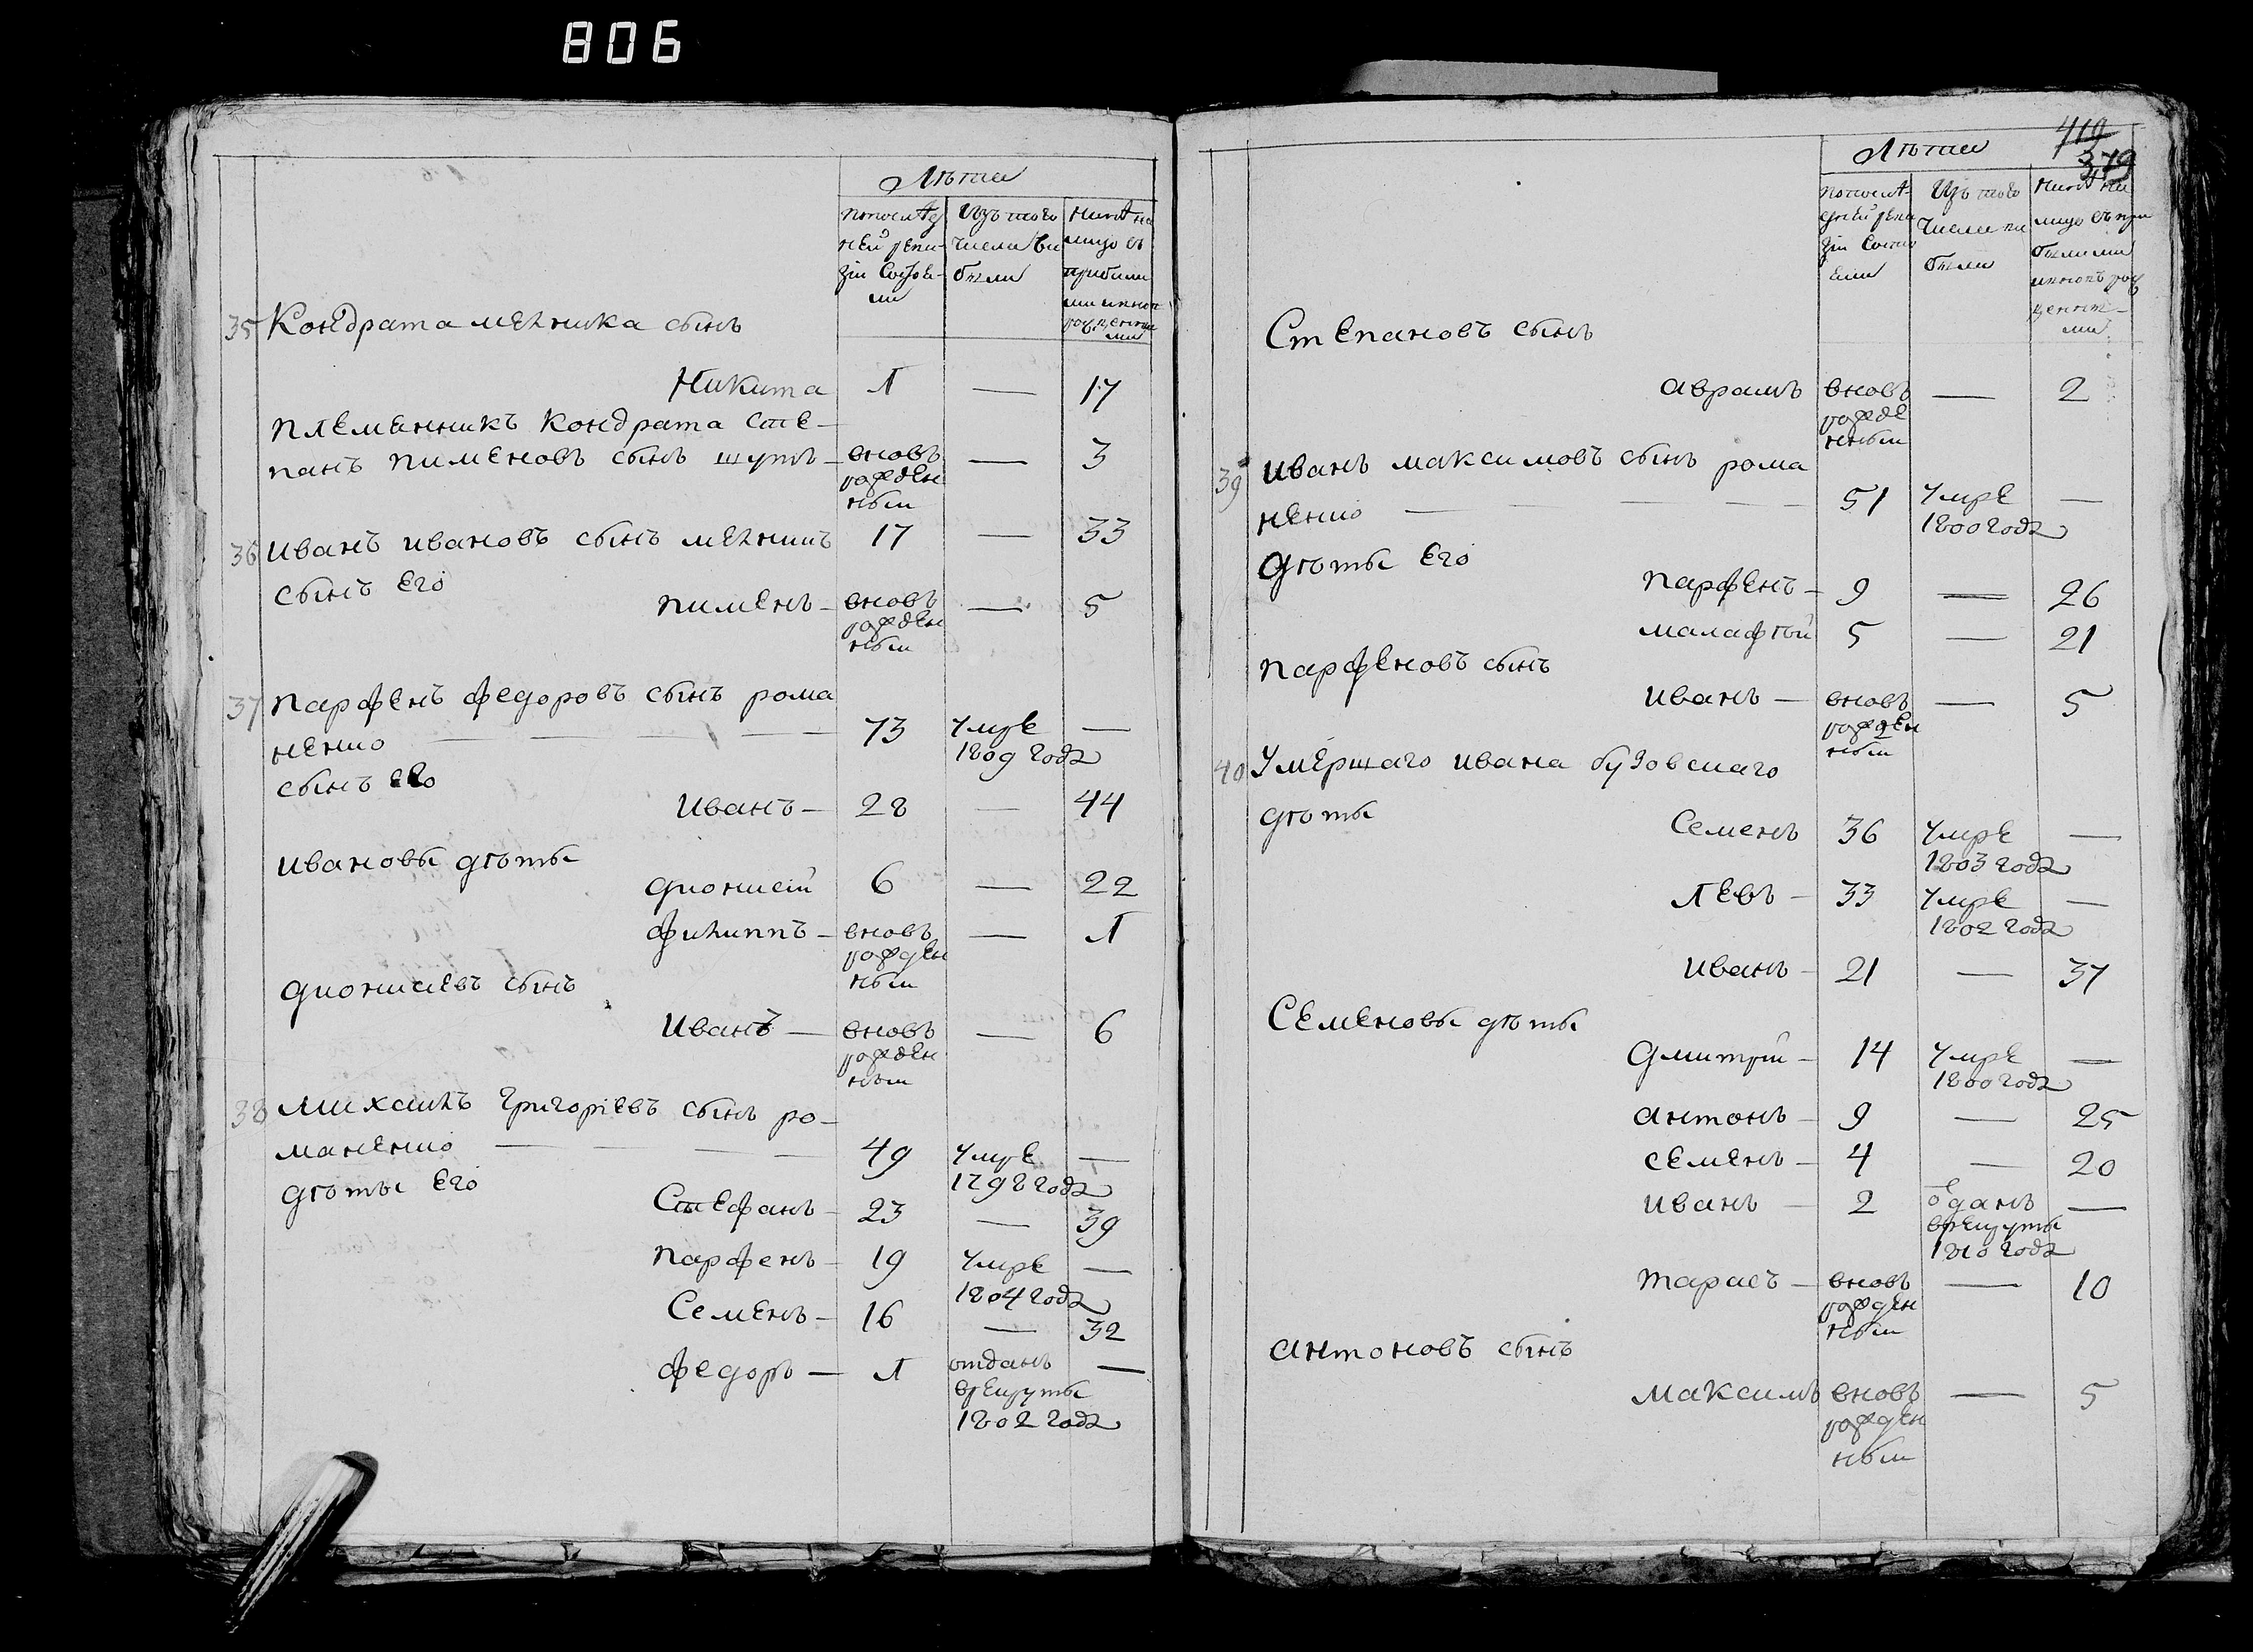 806
Лѣта
по послѣд
ней реви-
зіи состоя-
ли
Изъ того
числа вы
были
нынѣ на
лицо съ
прибылы
ми и вновь
рожденны
ми
35 Кондрата мельника сынъ
Никита 1 — 17
племянникъ кондрата сте-
панъ пименовъ сынъ щупъ — вновь — 3
рожден
ный
36 иванъ ивановъ сынъ мельникъ 17 — 33
сынъ его
пименъ — вновь — 5
рожден
ный
37 парфенъ федоровъ сынъ рома
ненко — 73 умре —
1809 года
сынъ его
иванъ — 28 — 44
ивановы дѣты
дионисій 6 — 22
филиппъ — вновь — 1
рожден
ный
дионисіевъ сынъ
Иванъ — вновь — 6
рожден
ный
38 михаилъ григоріевъ сынъ ро-
маненко — 49 умре —
1798 года
дѣты его
Стефанъ — 23 — 39
парфенъ — 19 умре —
1804 года
Семенъ — 16 — 32
федоръ — 1 отданъ —
врекруты
1802 года
419
379
Лѣта
по послѣ-
дней реви
зіи состо
яли
Изъ того
числа вы
были
нынѣ на
лицо съ при
былыми
и вновь рож
денны-
ми
Степановъ сынъ
аврамъ вновь — 2
рожде
нный
39 иванъ максимовъ сынъ рома
ненко — 51 умре —
1800 года
дѣты его
парфенъ — 9 — 26
малафѣй 5 — 21
парфеновъ сынъ
иванъ — вновь — 5
рожден
ный
40 Умершаго ивана бузовскаго
дѣты
Семенъ 36 умре —
1803 года
левъ — 33 умре —
1802 года
иванъ — 21 — 37
Семеновы дѣты
дмитрій — 14 умре —
1800 года
антонъ — 9 — 25
семенъ — 4 — 20
иванъ — 2 одданъ —
врекруты
1810 года
тарасъ — вновь — 10
рожден
ный
антоновъ сынъ
максимъ вновь — 5
рожден
ный